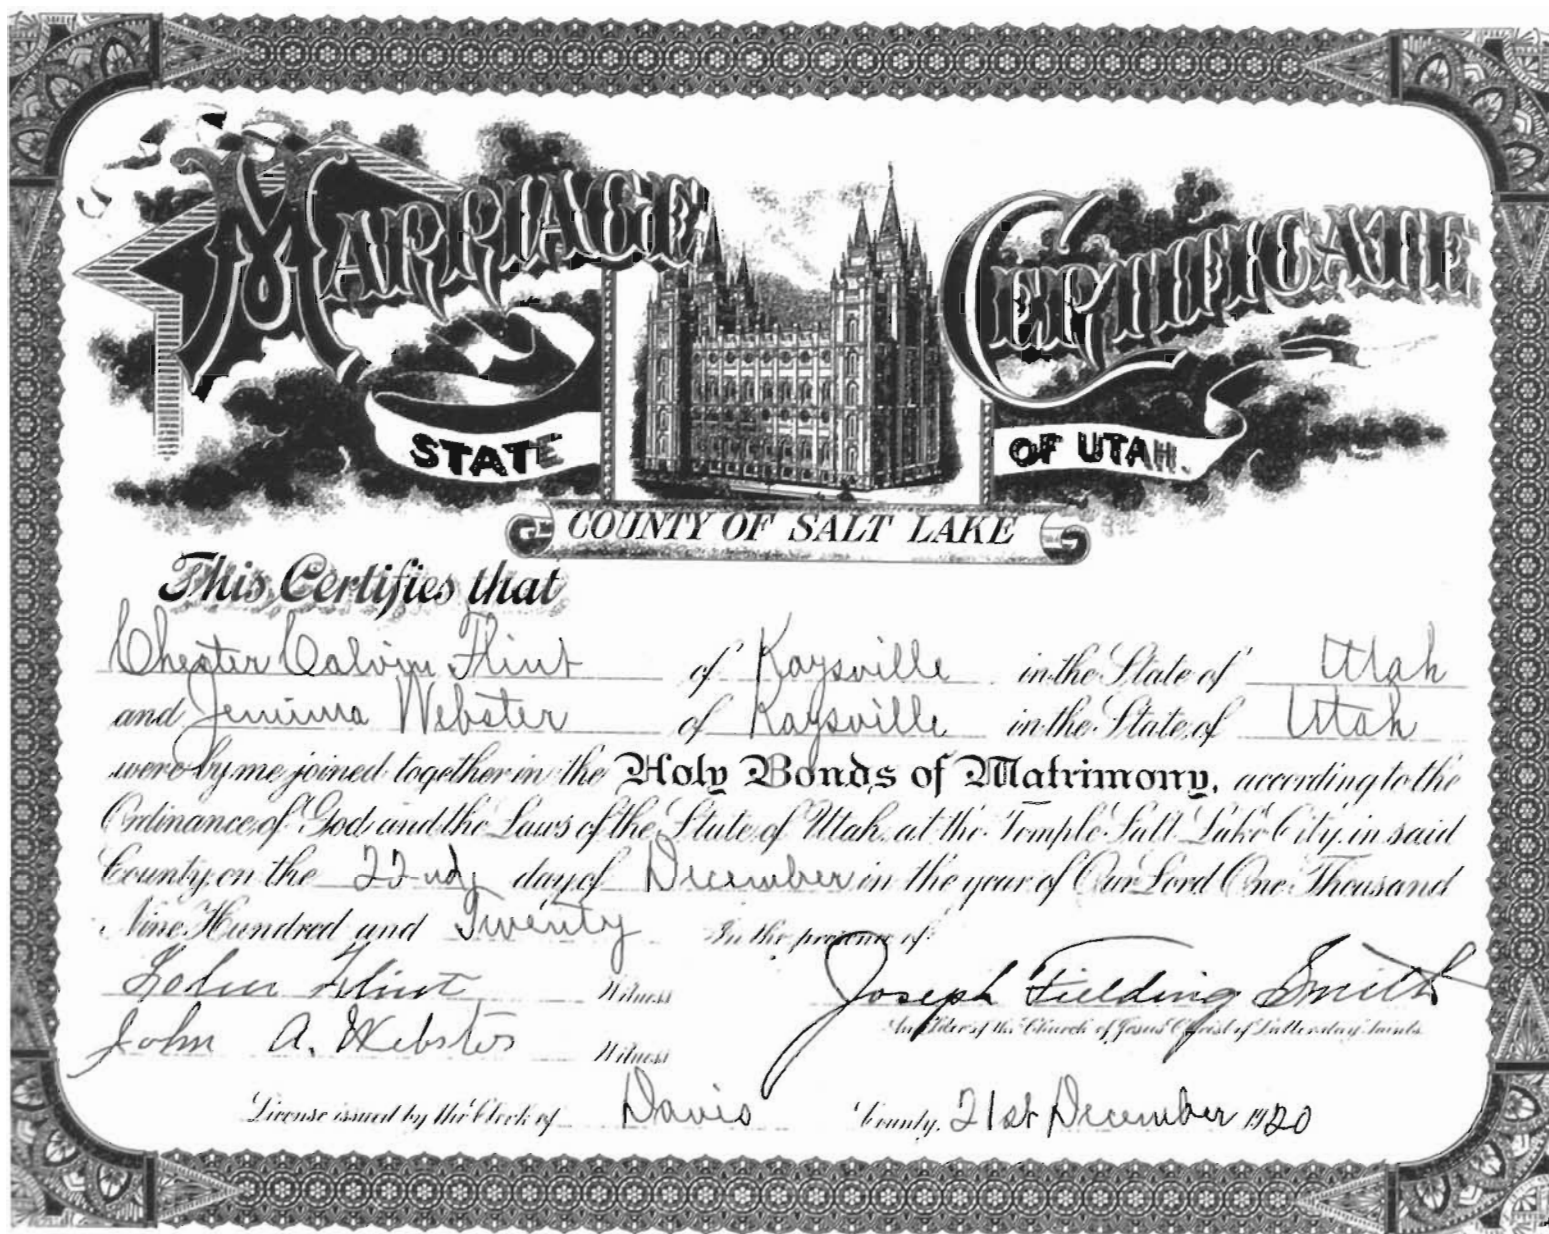 MARRIAGE CERTIFICATE
STATE OF UTAH.
COUNTY OF SALT LAKE
This Certifies that
Chester Calvin Flint of Kaysville in the State of Utah
and Jemima Webster of Kaysville in the State of Utah
were by me joined together in the Holy Bonds of Matrimony, according to the
Ordinance of God and the Laws of the State of Utah, at the Temple Salt Lake City, in said
County, on the 22nd day of December in the year of Our Lord One Thousand
Nine Hundred and Twenty In the presence of:
John Flint Witness Joseph Fielding Smith
An Elder of the Church of Jesus Christ of Latter-day Saints.
John A. Webster Witness
License issued by the Clerk of Davis County, 21st December 1920